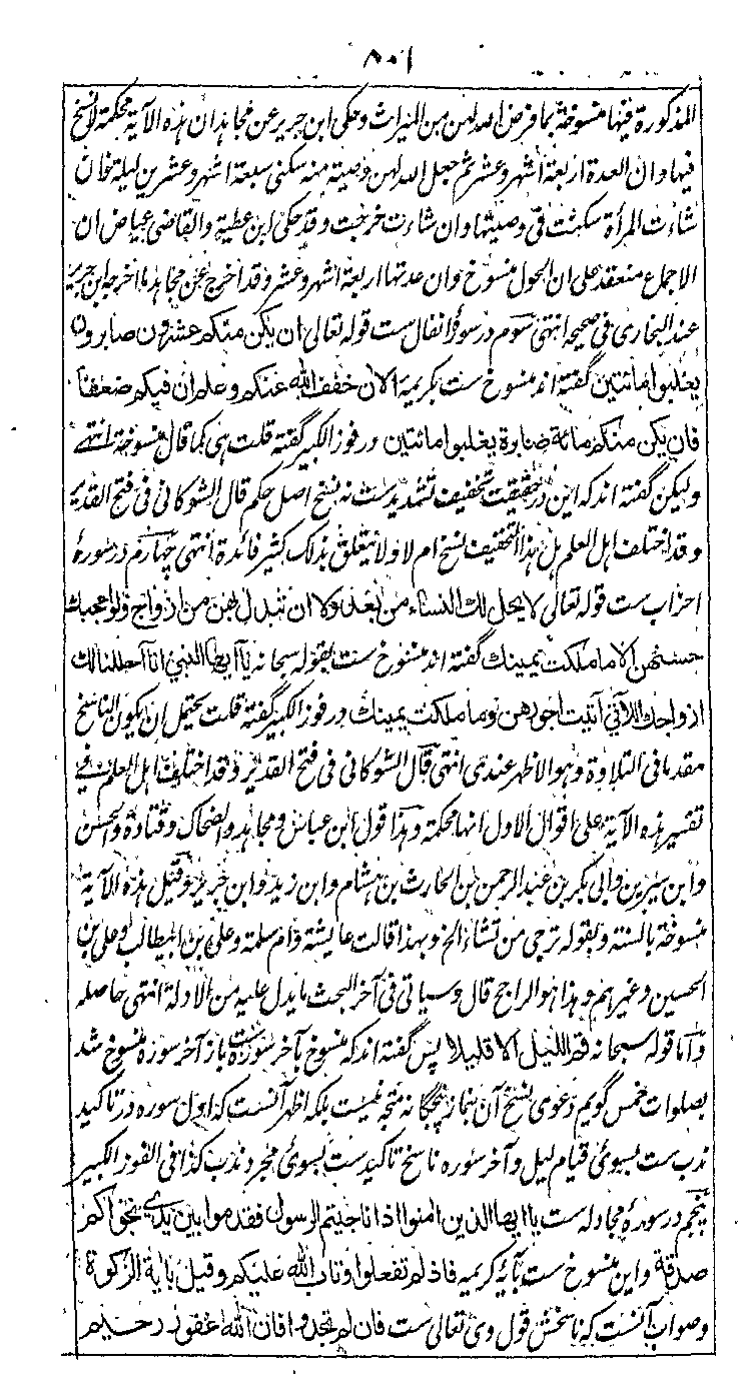 ٨٠١
المذکورة فیها منسوخة بما فرض الله لهن من المیراث وحکی ابن جریر عن مجاهد ان هذه الآیة محکمة لا نسخ
فیها وان العدة اربعة اشهر وعشر ثم جعل الله لهن وصیة منه سکنی سبعة اشهر وعشرین لیلة فان
شاءت المرأة سکنت فی وصیتها وان شاءت خرجت وقد حکی ابن عطیة والقاضی عیاض ان
الاجماع منعقد علی ان الحول منسوخ وان عدتها اربعة اشهر وعشر وقد اخرج عن مجاهد ما اخرجه ابن جریر
عند البخاری فی صحیحه انتهی سوم در سورهٔ انفال ست قوله تعالی ان یکن منکم عشرون صابرون
یغلبوا مائتین گفته اند منسوخ ست بکریمهٔ الان خفف الله عنکم وعلم ان فیکم ضعفا
فان یکن منکم مائة صابرة یغلبوا مائتین ودر فوز الکبیر گفته قلت هی کما قال منسوخة انتهی
ولیکن گفته اند که این در حقیقت تخفیف تشدید ست نه نسخ اصل حکم قال الشوکانی فی فتح القدیر
وقد اختلف اهل العلم هل هذا التخفیف نسخ ام لا ولا یتعلق بذلک کثیر فائدة انتهی چهارم در سورهٔ
احزاب ست قوله تعالی لا یحل لک النساء من بعد ولا ان تبدل بهن من ازواج ولو اعجبک
حسنهن الا ما ملکت یمینک گفته اند منسوخ ست بقوله سبحانه یا ایها النبی انا احللنا لک
ازواجک اللاتی آتیت اجورهن وما ملکت یمینک در فوز الکبیر گفته قلت یحتمل ان یکون الناسخ
مقدما فی التلاوة وهو الاظهر عندی انتهی قال الشوکانی فی فتح القدیر وقد اختلف اهل العلم فی
تفسیر هذه الآیة علی اقوال الاول انها محکمة وهذا قول ابن عباس ومجاهد والضحاک وقتادة والحسن
وابن سیرین وابی بکر بن عبد الرحمن بن الحارث بن هشام وابن زید وابن جریر وقیل هذه الآیة
منسوخة بالسنة وبقوله ترجی من تشاء الخ وبهذا قالت عایشة وام سلمة وعلی بن ابیطالب وعلی بن
الحسین وغیرهم وهذا هو الراجح قال وسیاتی فی آخر البحث ما یدل علیه من الادلة انتهی حاصله
واما قوله سبحانه قم اللیل الا قلیلا پس گفته اند که منسوخ بآخر سورت ست باز آخر سوره منسوخ شد
بصلوات خمس گویم دعوی نسخ آن بنماز پنجگانه متجه نیست بلکه اظهر آنست که اول سوره در تاکید
ندب ست بسوی قیام لیل وآخر سوره ناسخ تاکید ست بسوی مجرد ندب کذا فی الفوز الکبیر
پنجم در سورهٔ مجادله ست یا ایها الذین امنوا اذا ناجیتم الرسول فقدموا بین یدی نجواکم
صدقة واین منسوخ ست بآیهٔ کریمه فاذ لم تفعلوا وتاب الله علیکم وقیل بایة الزکوة
وصواب آنست که ناسخش قول وی تعالی ست فان لم تجدوا فان الله غفور رحیم